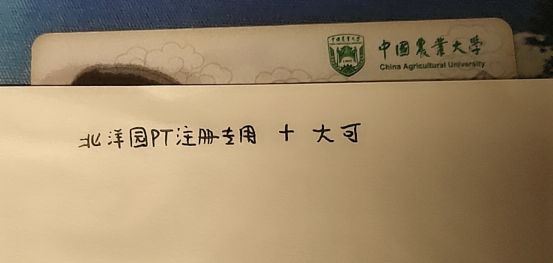 中国農業大学
China Agricultural University
北洋园PT注册专用 + 大可